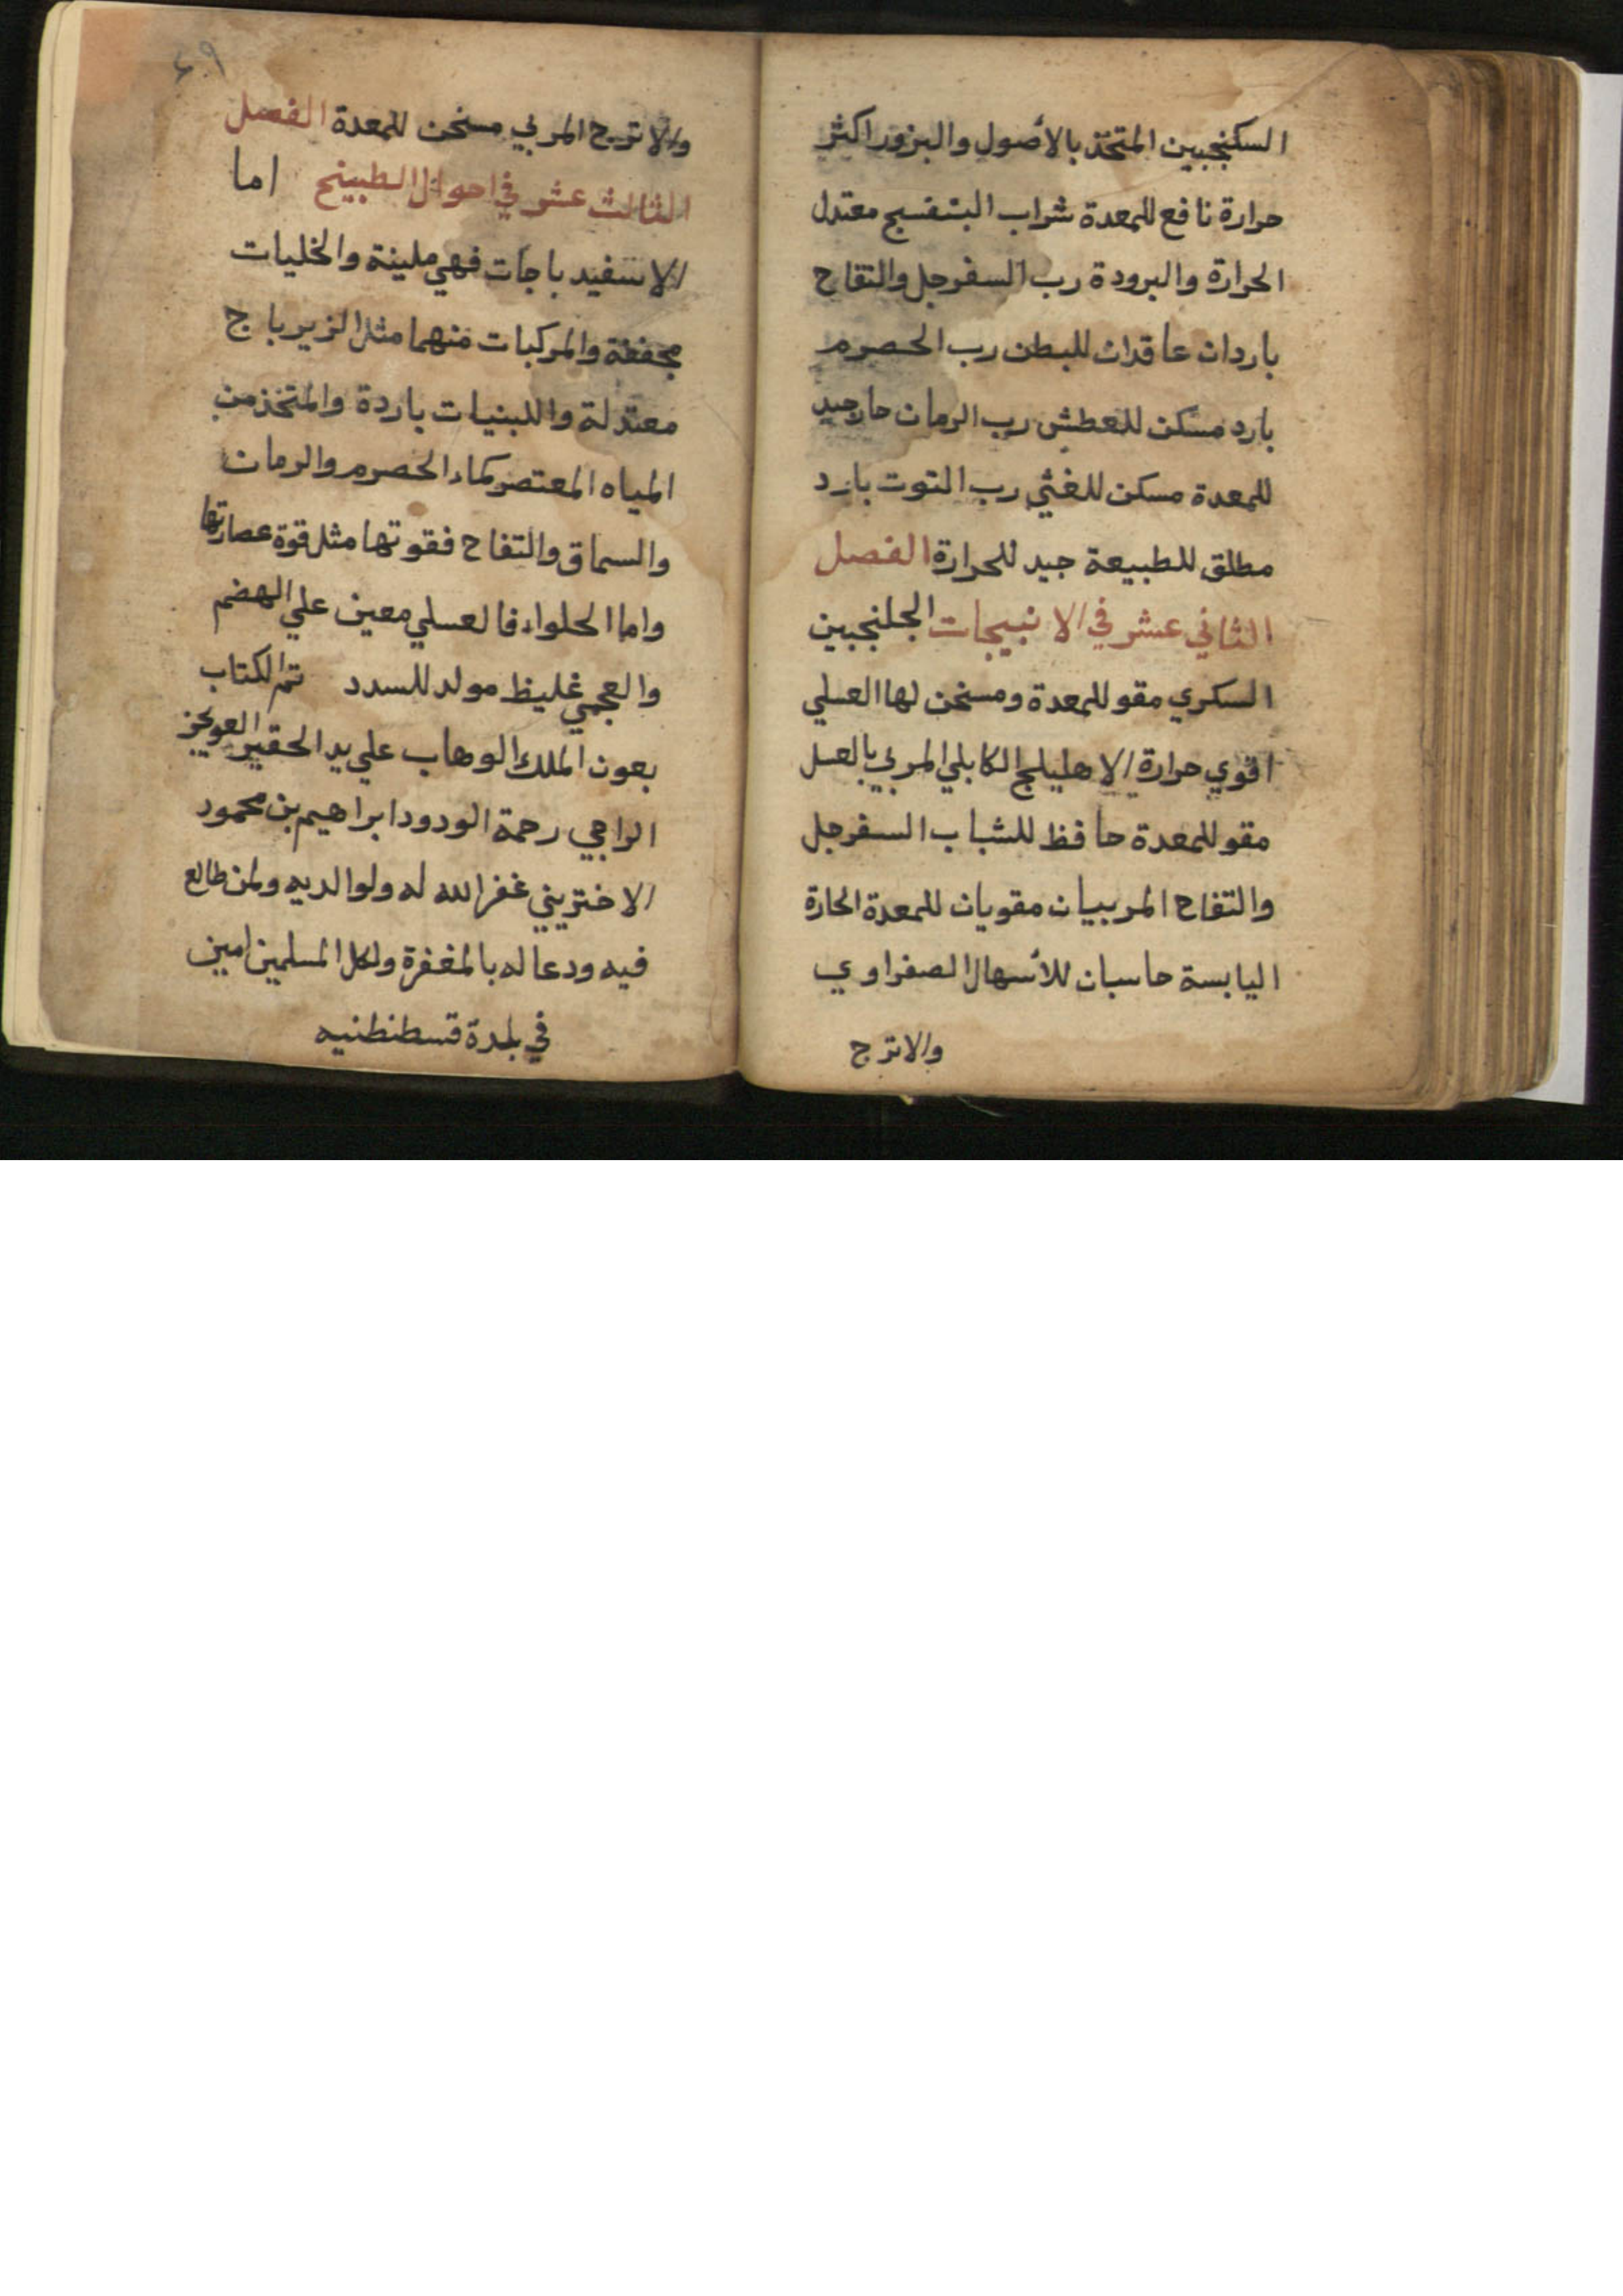 السكنجبين المتخذ بالأصول والبزور اكثر
حرارة نافع للمعدة شراب البنفسج معتدل
الحرارة والبرودة رب السفرجل والتفاح
باردان عاقدان للبطن رب الحصرم
بارد مسكن للعطش رب الرمان حار جيد
للمعدة مسكن للغثي رب التوت بارد
مطلق للطبيعة جيد للحرارة الفصل
الثاني عشر في الانبيجات الجلنجبين
السكري مقو للمعدة ومسخن لها العسلي
اقوي حرارة الاهليلج الكابلي المربي بالعسل
مقو للمعدة حافظ للشباب السفرجل
والتفاح المربيان مقويان للمعدة الحارة
اليابسة حابسان للأسهال الصفراوي
والاترج
والاترج المربي مسخن للمعدة الفصل
الثالث عشر في احوال الطبيخ اما
الاسفيدباجات فهي ملينة والخليات
مجففة والمركبات منهما مثل الزيرباج
معتدلة واللبنيات باردة والمتخذ من
المياه المعتصر كماء الحصرم والرمان
والسماق والتفاح فقوتها مثل قوة عصارتها
واما الحلواء فالعسلي معين علي الهضم
والعجمي غليظ مولد للسدد تم الكتاب
بعون الملك الوهاب علي يد الحقير
الراجي رحمة الودود ابراهيم بن محمود
غفر الله له ولوالديه ولمن طالع
فيه ودعا له بالمغفرة ولكل المسلمين امين
في بلدة قسطنطنيه